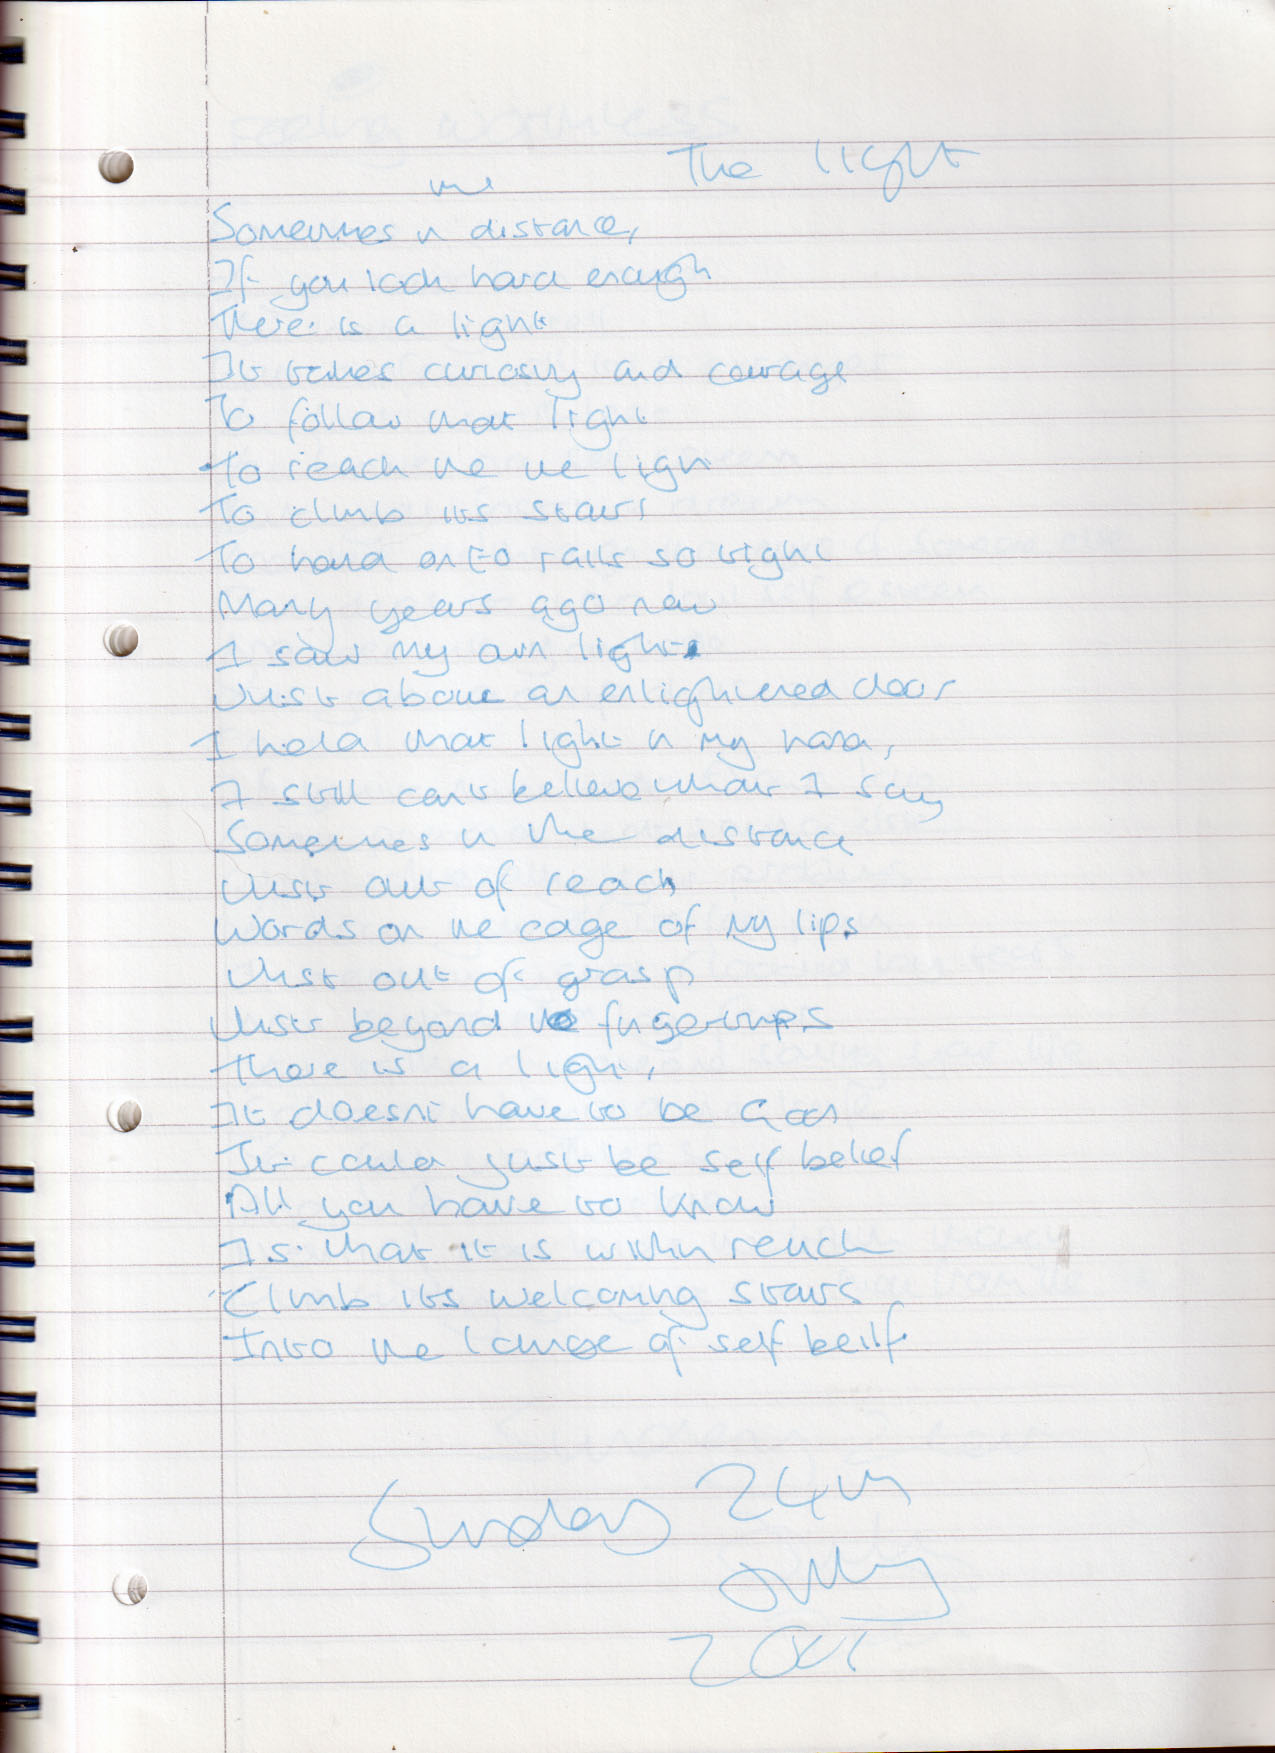 The light
the
Sometimes in distance,
If you look hard enough
There is a light
It takes curiosity and courage
To follow that light
To reach the the light
To climb its stairs
To hand onto rails so tight
Many years ago now
I saw my own light
Just above an enlightened door
I held that light in my hand,
I still can't believe what I say
Sometimes in the distance
Just out of reach
Words on the cage of my lips
Just out of grasp
Just beyond the fingertips
There is a light,
It doesnt have to be God
It could just be self belief
All you have to know
Is that it is within reach
Climb its welcoming stairs
Into the lounge of self belif.
Sunday 24th
July